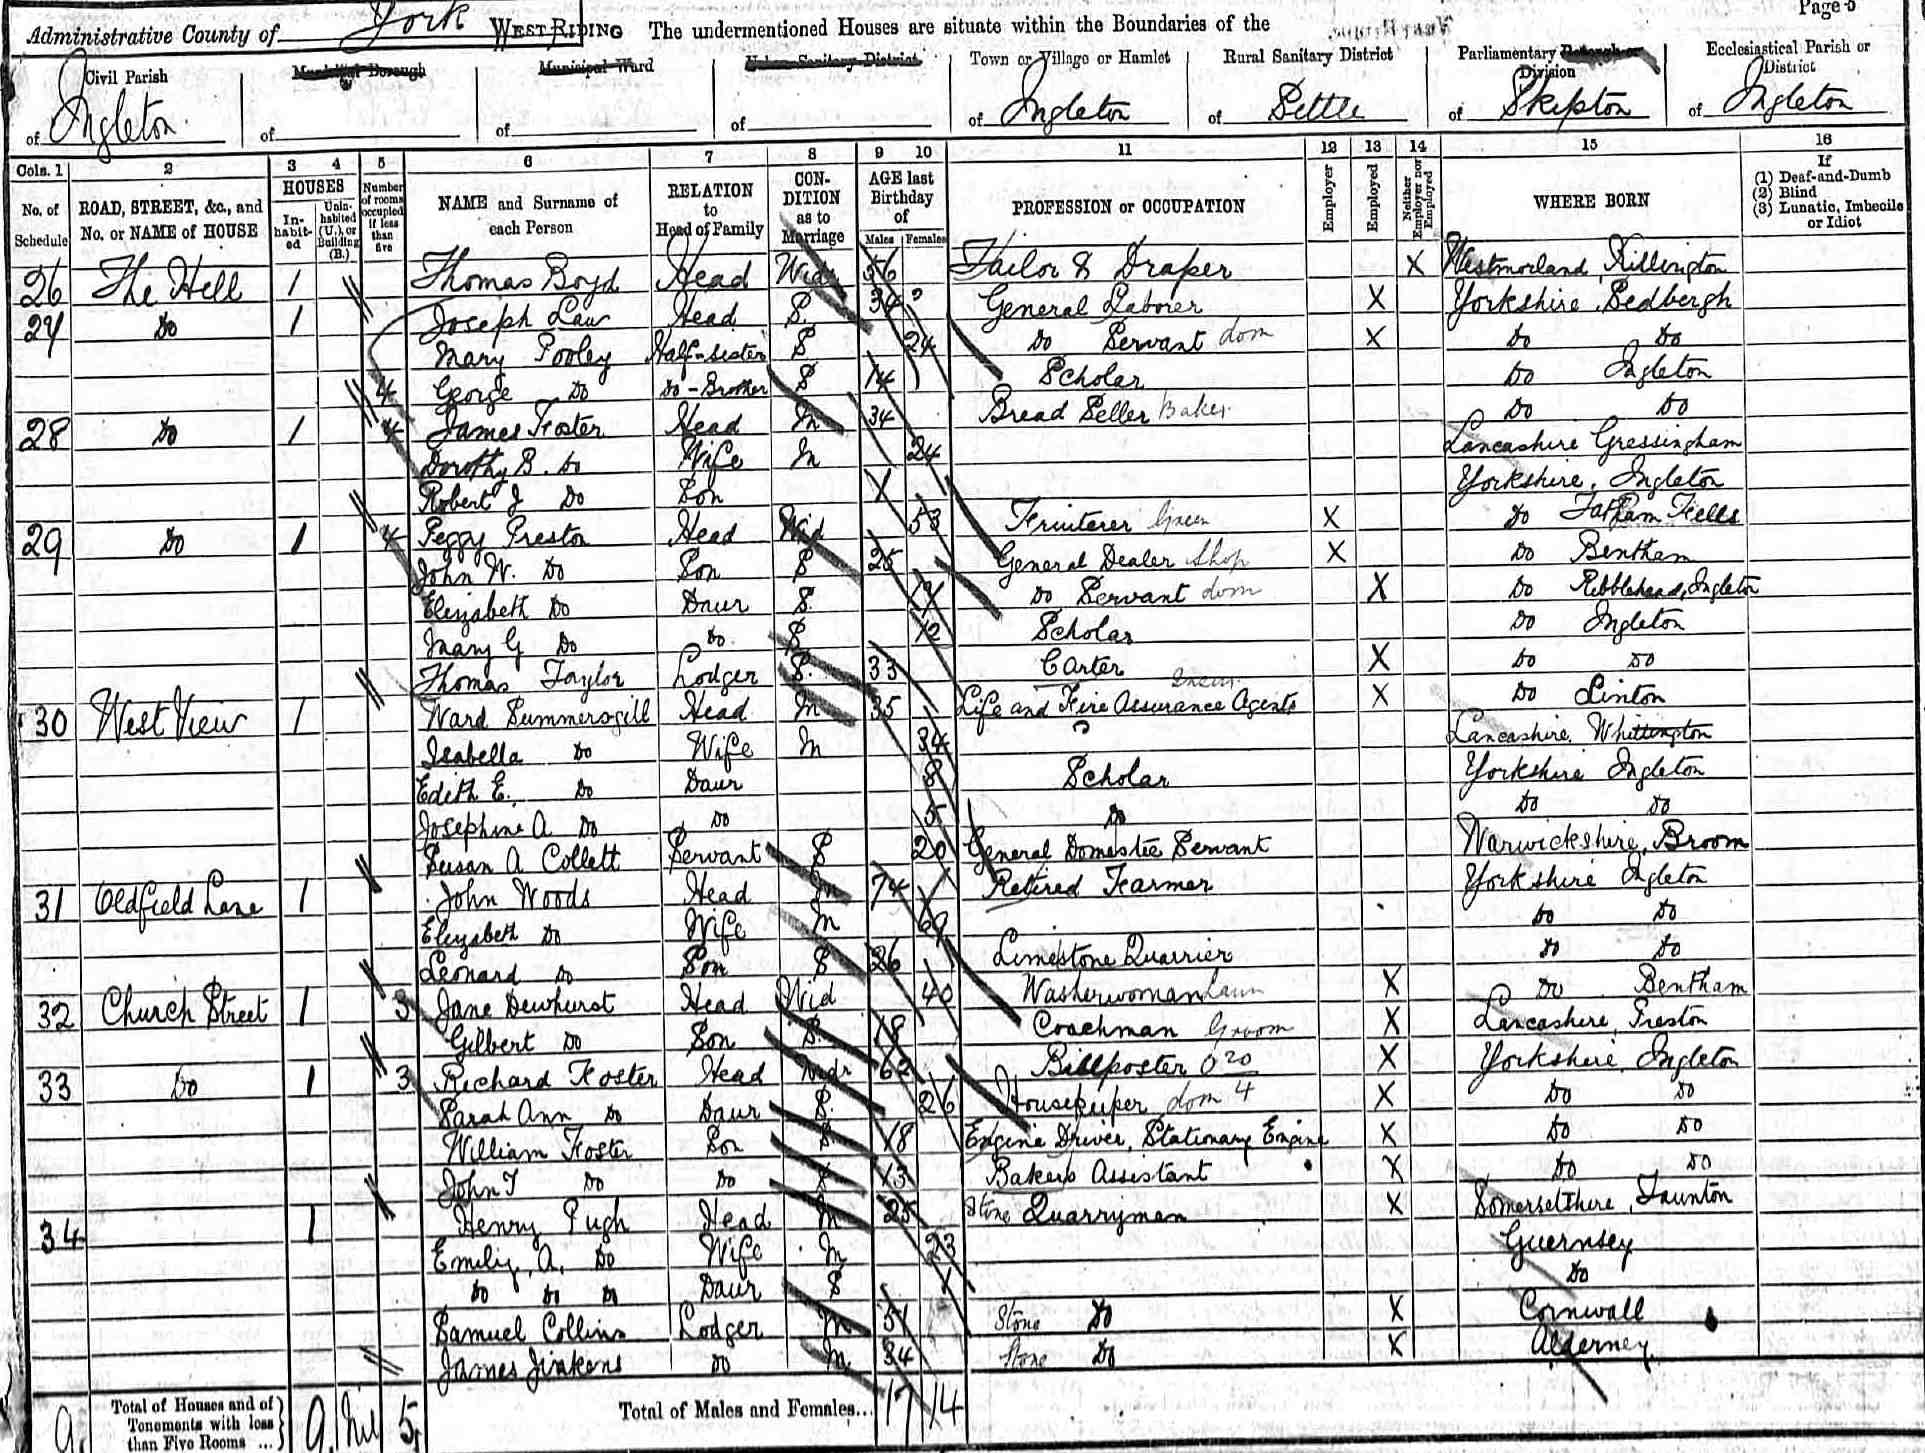 Page 5
Administrative County of York WEST RIDING The undermentioned Houses are situate within the Boundaries of the
Civil Parish of Ingleton
Municipal Borough of
Municipal Ward of
Urban Sanitary District of
Town or Village or Hamlet of Ingleton
Rural Sanitary District of Settle
Parliamentary Borough or Division of Skipton
Ecclesiastical Parish or District of Ingleton
Cols. 1 2 3 4 5 6 7 8 9 10 11 12 13 14 15 16
No. of Schedule
ROAD, STREET, &c., and No. or NAME of HOUSE
HOUSES
Inhabited
Uninhabited (U.), or Building (B.)
Number of rooms occupied if less than five
NAME and Surname of each Person
RELATION to Head of Family
CONDITION as to Marriage
AGE last Birthday of
Males Females
PROFESSION or OCCUPATION
Employer
Employed
Neither Employer nor Employed
WHERE BORN
If
(1) Deaf-and-Dumb
(2) Blind
(3) Lunatic, Imbecile or Idiot
26 The Hell 1 Thomas Boyd Head Widr 56 Tailor & Draper X Westmorland, Killington
27 Do 1 Joseph Law Head S. 34 General Laborer X Yorkshire, Sedbergh
Mary Pooley Half-sister S 24 Do Servant dom X Do Do
4 George Do Do-Brother S 14 Scholar Do Ingleton
28 Do 1 4 James Foster Head M 34 Bread Seller Baker Do Do
Dorothy B. Do Wife M 24 Lancashire Gressingham
Robert J Do Son 1 Yorkshire, Ingleton
29 Do 1 4 Peggy Preston Head Wid 53 Fruiterer Green X Do Tatham Fells
John W. Do Son S 25 General Dealer Shop X Do Bentham
Elizabeth Do Daur S. Do Servant dom X Do Ribblehead, Ingleton
Mary G Do Do. S 12 Scholar Do Ingleton
Thomas Taylor Lodger S. 33 Carter X Do Do
30 West View 1 Ward Summersgill Head M 35 Life and Fire Assurance Agents X Do Linton
Isabella Do Wife M 34 Lancashire, Whittington
Edith E. Do Daur 8 Scholar Yorkshire Ingleton
Josephine A Do Do 5 Do Do Do
Susan A Collett Servant S 20 General Domestic Servant Warwickshire, Broom
31 Oldfield Lane 1 John Woods Head M 74 Retired Farmer Yorkshire Ingleton
Elizabeth Do Wife M 69 Do Do
Leonard Do Son S 26 Limestone Quarrier Do Do
32 Church Street 1 3 Jane Dewhurst Head Wid 40 Washerwoman Laun X Do Bentham
Gilbert Do Son S. 18 Coachman Groom X Lancashire, Preston
33 Do 1 3 Richard Foster Head Widr 62 Billposter X Yorkshire, Ingleton
Sarah Ann Do Daur S. 26 Housekeeper dom 4 X Do Do
William Foster Son S 18 Engine Driver, Stationary Engine X Do Do
John T Do Do S 13 Bakers Assistant X Do Do
34 1 Henry Pugh Head M 25 Stone Quarryman X Somersetshire, Taunton
Emily, A, Do Wife M 23 Guernsey
Do Do Do Daur S 1 Do
Samuel Collins Lodger M 51 Stone Do X Cornwall
James Jinkens Do M 34 Stone Do X Alderney
9 Total of Houses and of Tenements with less than Five Rooms ... 9 Nil 5 Total of Males and Females... 17 14